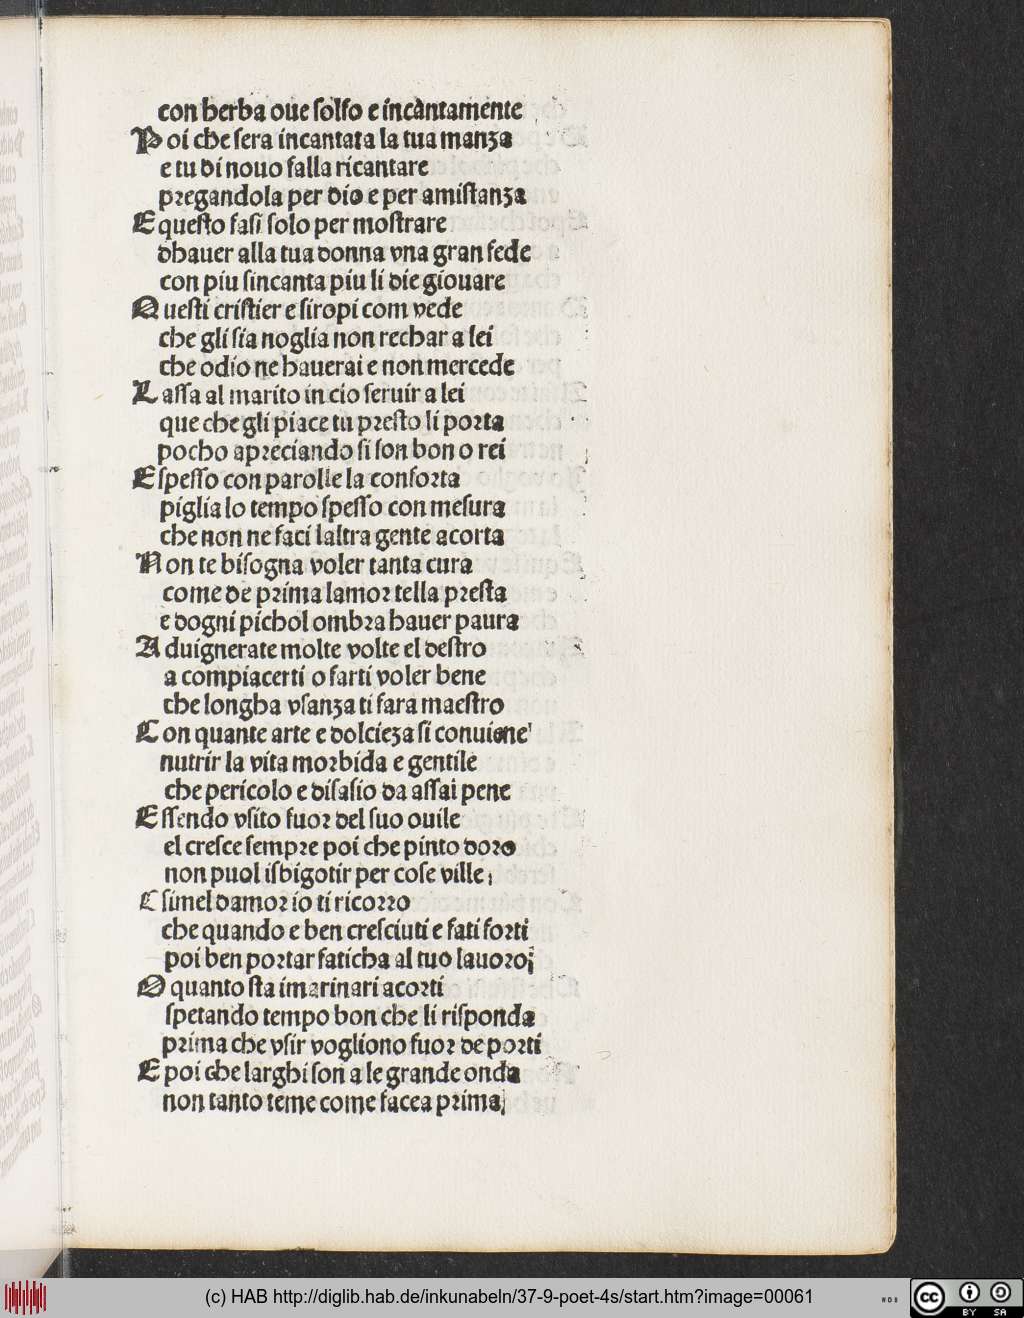 con herba oue solfo e incàntamente
Poi che sera incantata la tua manza
e tu di nouo falla ricantare
pregandola per dio e per amistanza
E questo fasi solo per mostrare
dhauer alla tua donna vna gran fede
con piu sincanta piu li die giouare
Questi cristier e siropi com vede
che gli sia noglia non rechar a lei
che odio ne hauerai e non mercede
Lassa al marito in cio seruir a lei
que che gli piace tu presto li porta
pocho apreciando si son bon o rei
E spesso con parolle la conforta
piglia lo tempo spesso con mesura
che non ne faci laltra gente acorta
Non te bisogna voler tanta cura
come de prima lamor tella presta
e dogni pichol ombra hauer paura
Aduignerate molte volte el destro
a compiacerti o farti voler bene
che longha vsanza ti fara maestro
Con quante arte e dolcieza si conuiene
nutrir la vita morbida e gentile
che pericolo e disasio da assai pene
Essendo vsito fuor del suo ouile
el cresce sempre poi che pinto doro
non puol isbigotir per cose ville
E simel damor io ti ricorro
che quando e ben cresciuti e fati forti
poi ben portar faticha al tuo lauoro
O quanto sta i marinari acorti
spetando tempo bon che li risponda
prima che vsir vogliono fuor de porti
E poi che larghi son a le grande onda
non tanto teme come facea prima
(c) HAB http://diglib.hab.de/inkunabeln/37-9-poet-4s/start.htm?image=00061
cc BY SA